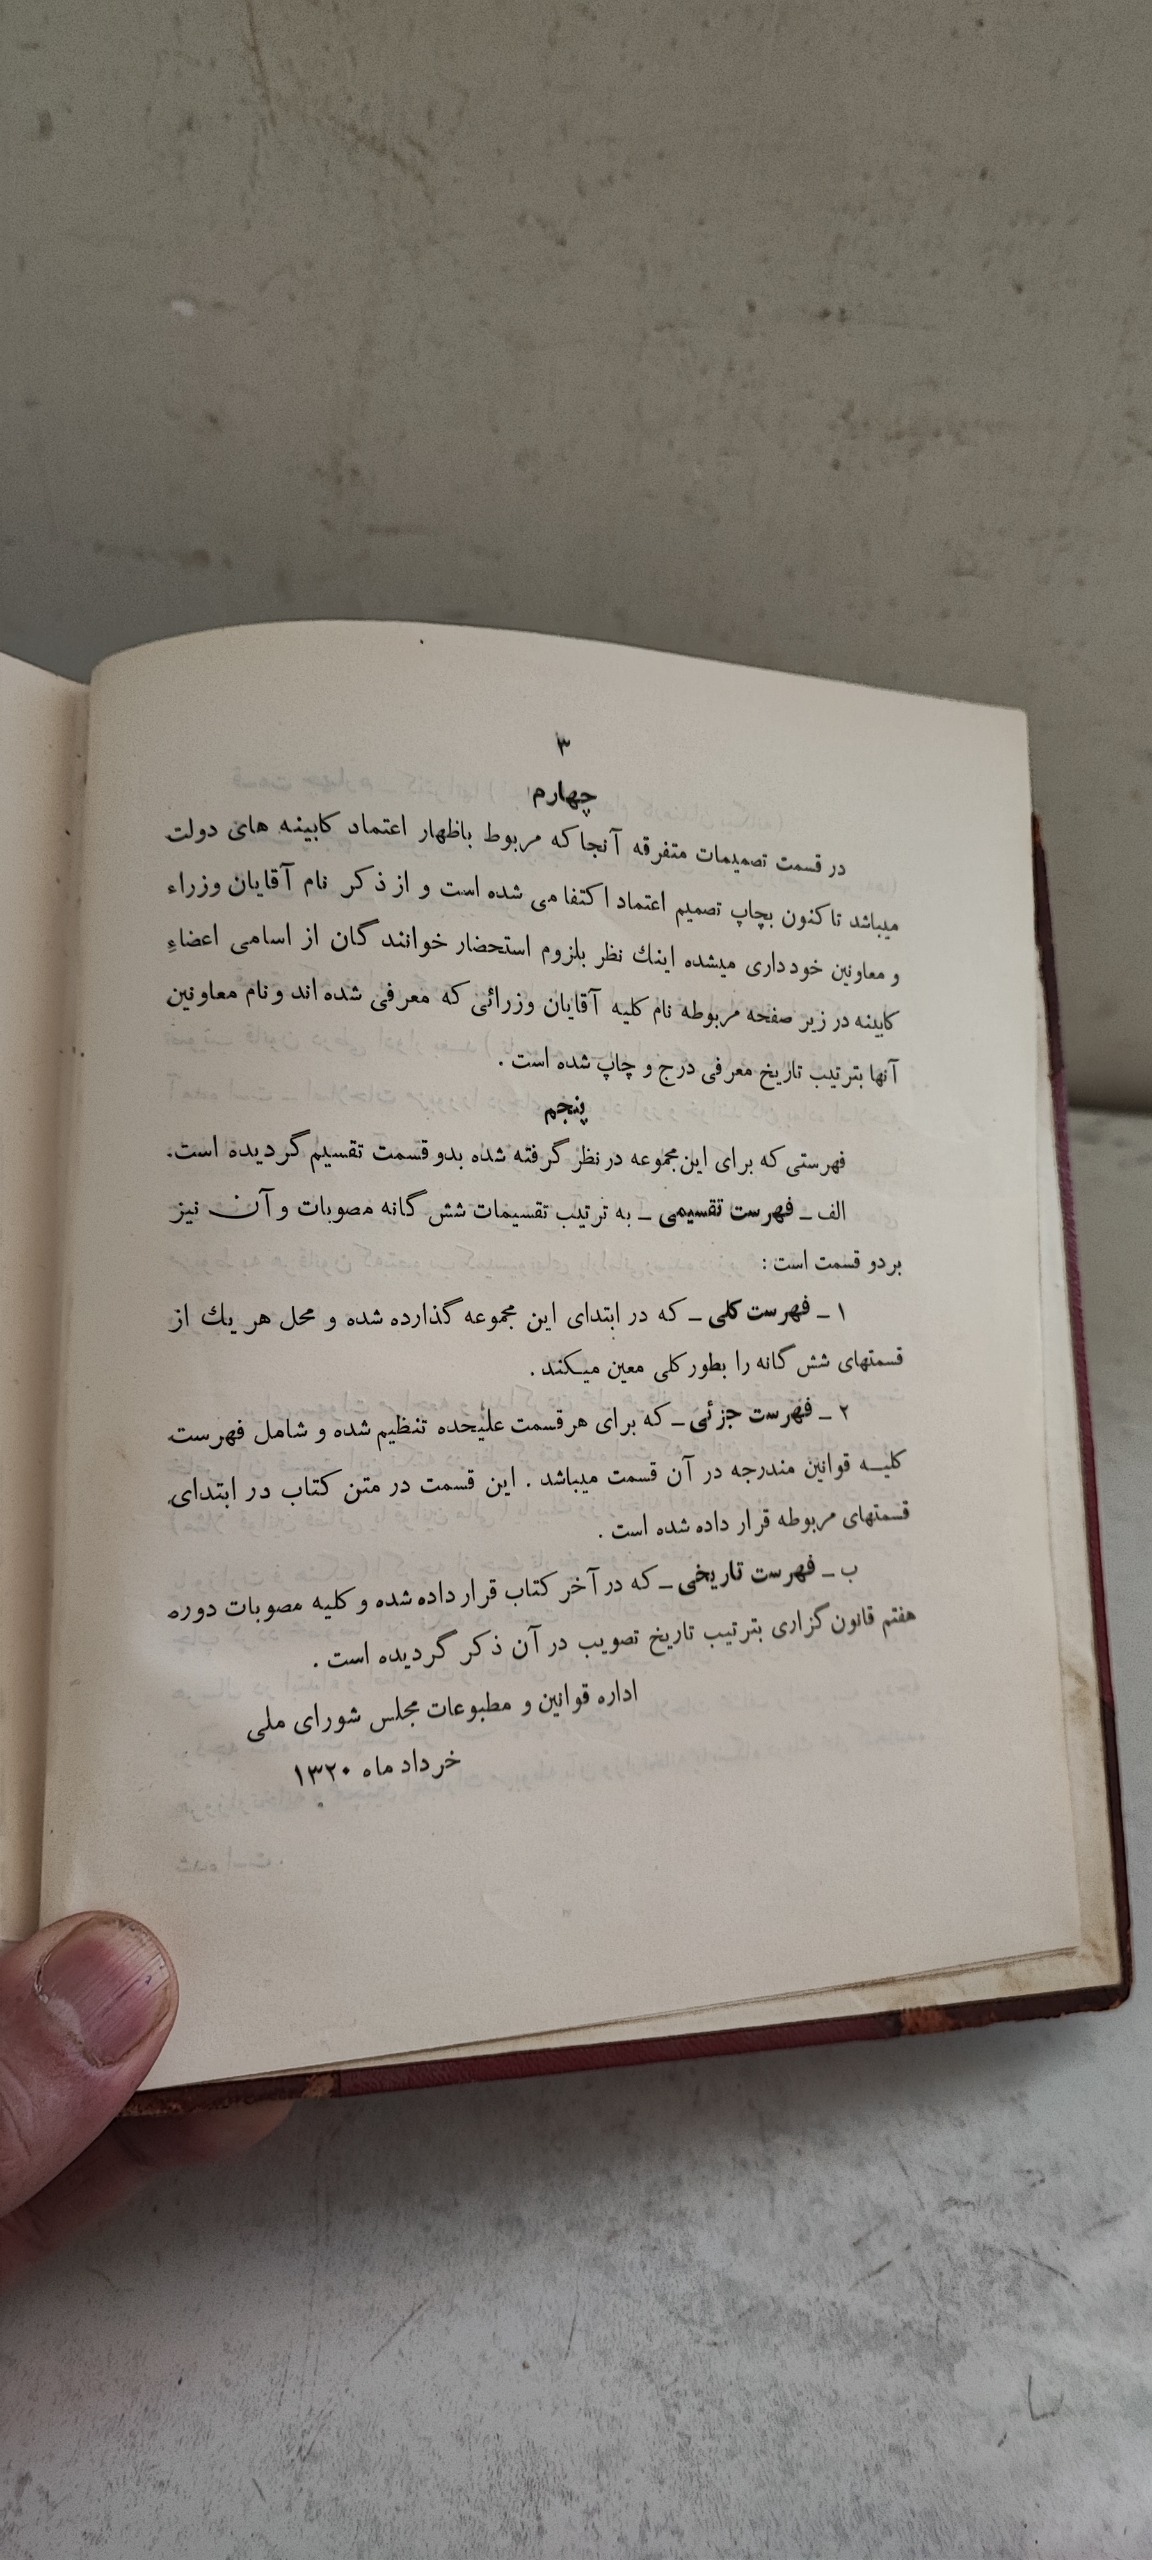 ۳
چهارم
در قسمت تصمیمات متفرقه آنجا که مربوط باظهار اعتماد کابینه های دولت
میباشد تاکنون بچاپ تصمیم اعتماد اکتفا می شده است و از ذکر نام آقایان وزراء
و معاونین خودداری میشده اینك نظر بلزوم استحضار خوانندگان از اسامی اعضاءِ
کابینه در زیر صفحه مربوطه نام کلیه آقایان وزرائی که معرفی شده اند و نام معاونین
آنها بترتیب تاریخ معرفی درج و چاپ شده است .
پنجم
فهرستی که برای این مجموعه در نظر گرفته شده بدو قسمت تقسیم گردیده است.
الف ـ فهرست تقسیمی ـ به ترتیب تقسیمات شش گانه مصوبات و آن نیز
بر دو قسمت است :
۱ ـ فهرست کلی ـ که در ابتدای این مجموعه گذارده شده و محل هر یك از
قسمتهای شش گانه را بطور کلی معین میکند .
۲ ـ فهرست جزئی ـ که برای هر قسمت علیحده تنظیم شده و شامل فهرست
کلیه قوانین مندرجه در آن قسمت میباشد . این قسمت در متن کتاب در ابتدای
قسمتهای مربوطه قرار داده شده است .
ب ـ فهرست تاریخی ـ که در آخر کتاب قرار داده شده و کلیه مصوبات دوره
هفتم قانون گزاری بترتیب تاریخ تصویب در آن ذکر گردیده است .
اداره قوانین و مطبوعات مجلس شورای ملی
خرداد ماه ۱۳۲۰